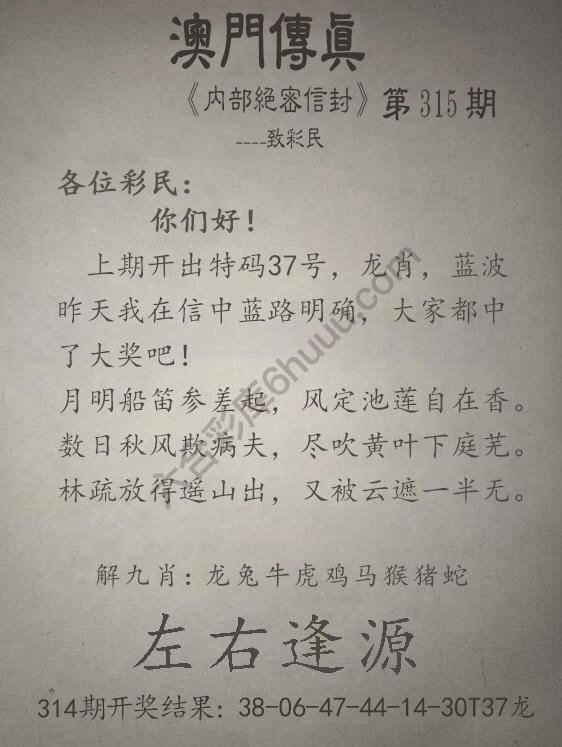 澳門傳眞
《内部絕密信封》第315期
----致彩民
各位彩民：
你们好！
上期开出特码37号，龙肖，蓝波
昨天我在信中蓝路明确，大家都中
了大奖吧！
月明船笛参差起，风定池莲自在香。
数日秋风欺病夫，尽吹黄叶下庭芜。
林疏放得遥山出，又被云遮一半无。
六合彩库6huuu.com
解九肖：龙兔牛虎鸡马猴猪蛇
左右逢源
314期开奖结果：38-06-47-44-14-30T37龙